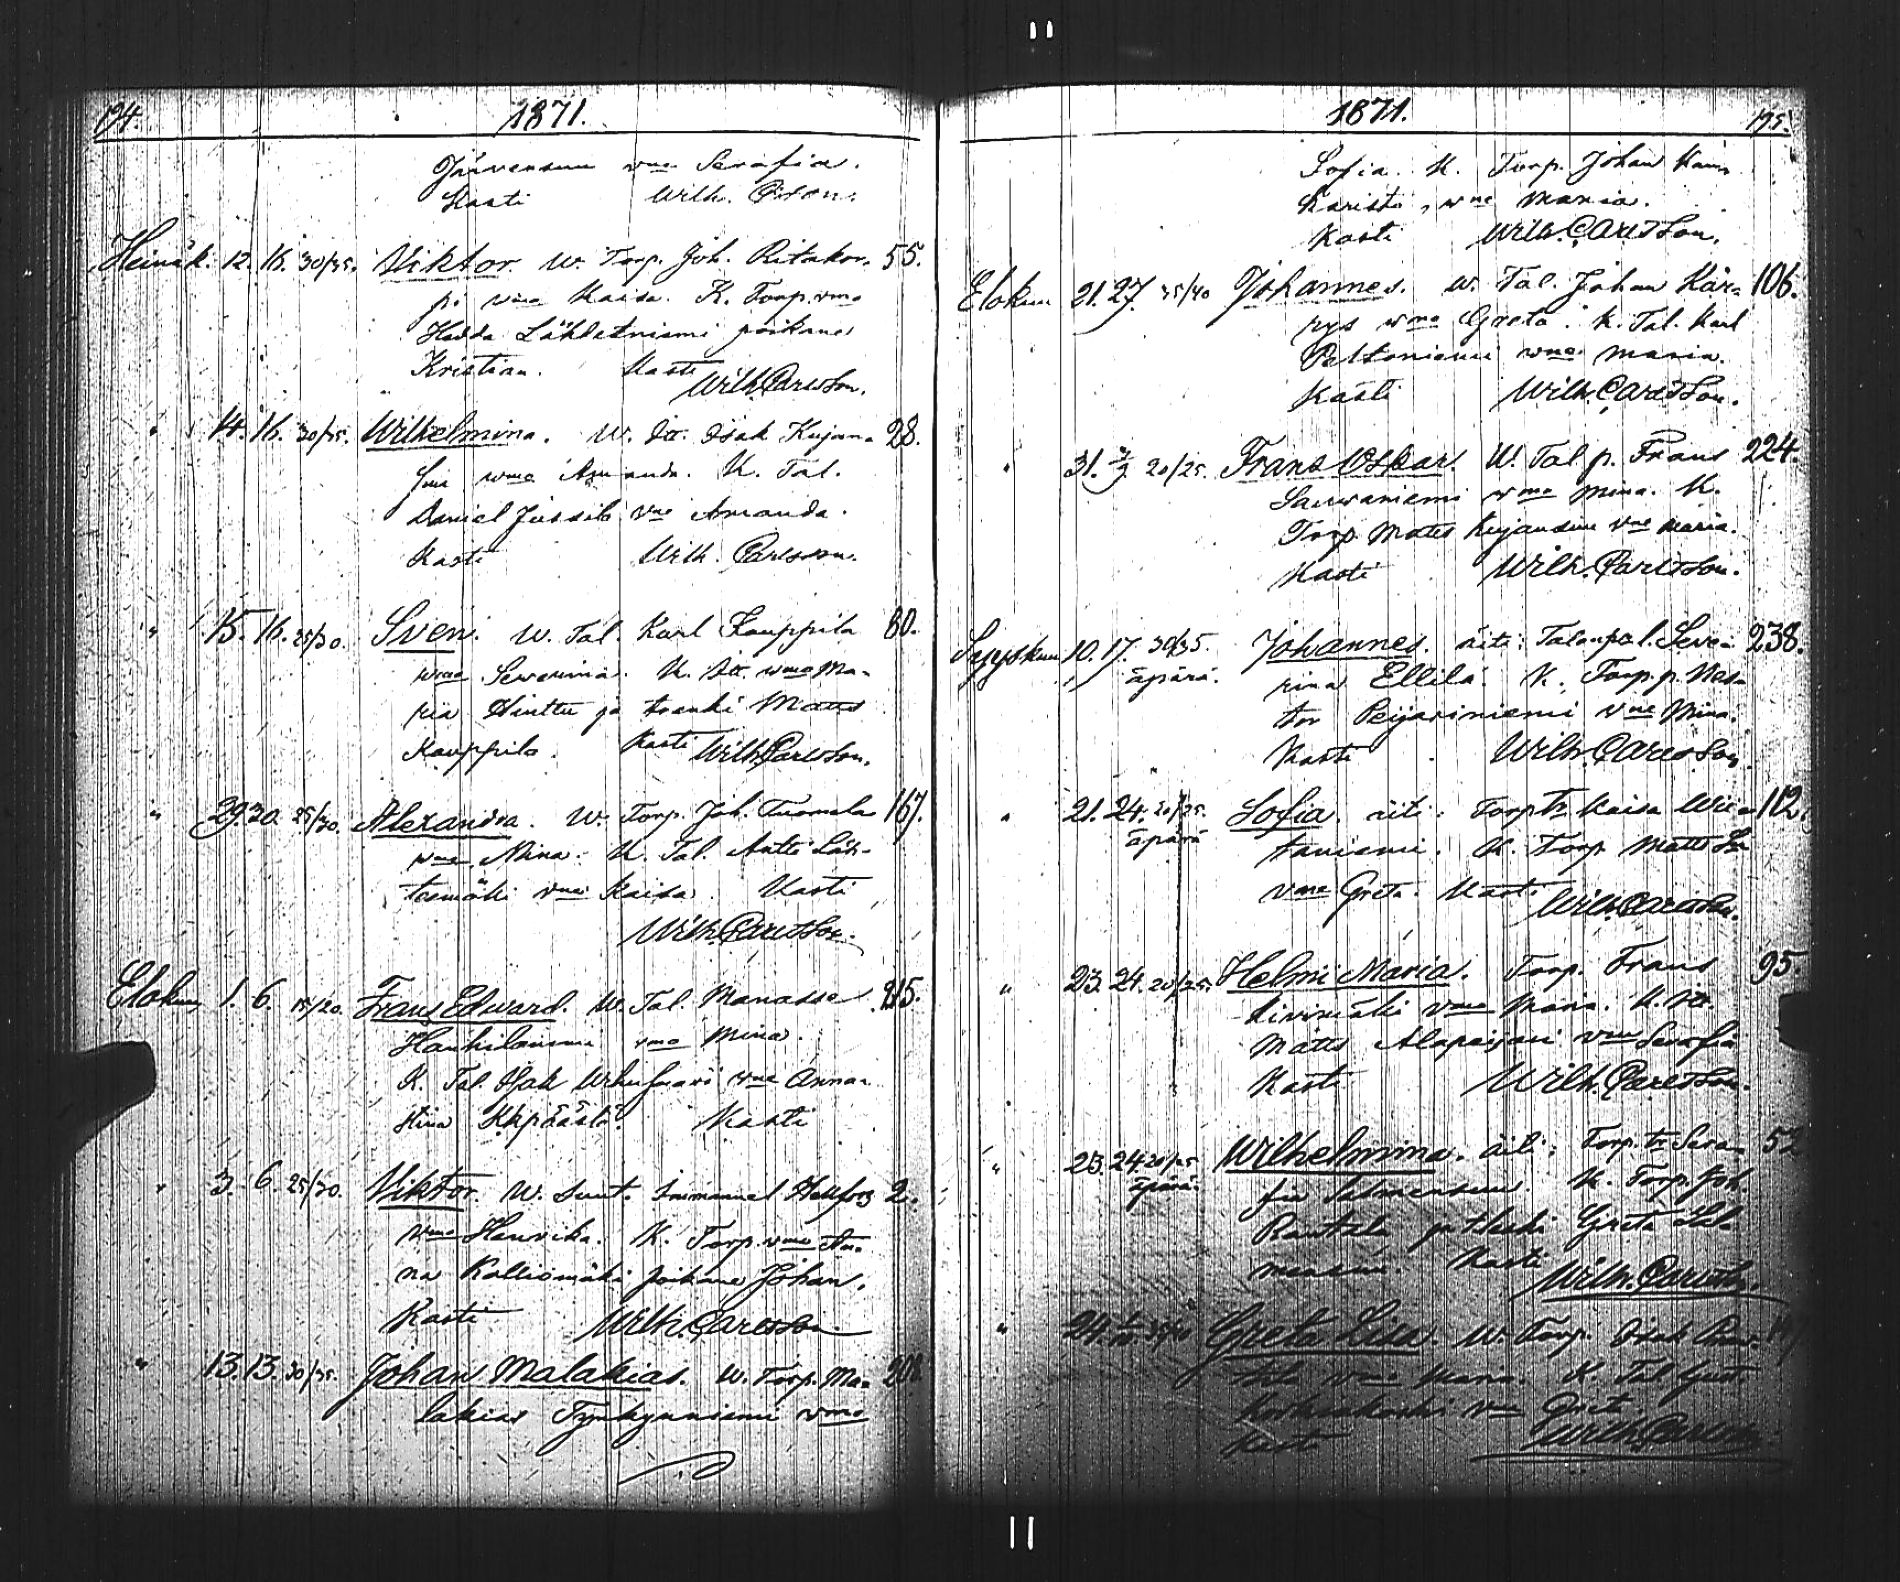 194.
1871.
Järvensuu vmo Serafia.
Kasti Wilh. C:son.
Heinäk. 12. 16. 30/35. Viktor. W. Torp. Joh. Ritakor- 55.
pi vmo Kaisa. K. Torp. vmo
Hedda Lähdetniemi poikane
Kristian. Kasti
Wilh. Carlsson.
" 14. 16. 30/35. Wilhelmina. W. Itt. Isak Kujan- 28.
suu vmo Amanda. K. Tal.
Daniel Jussila vmo Amanda.
Kasti Wilh. Carlsson.
" 15. 16. 25/30. Sven. W. Tal. Karl Kauppila 80.
vmo Severina. K. Itt. vmo Ma-
ria Hinttu ja trenki Matts
Kauppila. Kasti Wilh. Carlsson.
" 29. 30. 25/30. Alexandra. W. Torp. Joh. Tuomela 167.
vmo Mina. K. Tal. Antti Läh-
teemäki vmo Kaisa. Kasti
Wilh. Carlsson.
Elokuu 1. 6. 15/20. Frans Edward. W. Tal. Manasse 215.
vmo Mina.
K. Tal. Isak vmo Anna-
stiina Kasti
" 3. 6. 25/30. Viktor. W. Sunt. Immanuel Hellfors 2.
vmo Henrika. K. Torp. vmo An-
na Kalliomäki poikane Johan.
Kasti Wilh. Carlsson
" 13. 13. 30/35. Johan Malakias. W. Torp. Ma- 208.
lakias Tynkynniemi vmo
1871.
195.
Sofia. K. Torp. Johan
Karisto, vmo Maria.
Kasti Wilh. Carlsson.
Elokuu 21. 27. 35/40 Johannes. W. Tal. Johan Kär- 106.
pys vmo Greta. K. Tal. Karl
Peltoniemi vmo Maria.
Kasti Wilh. Carlsson.
" 31. 3/9. 20/25. Frans Oskar. W. Tal. p. Frans 224.
Sauvaniemi vmo Mina. K.
Torp. Matts Kujansuu vmo Maria.
Kasti Wilh. Carlsson.
Syyskuu 10. 17. 30/35. Johannes. äiti: Talonp. l. Seve- 238.
äpärä. rina Ellilä. K. Torp. p. Nes-
tor Peijariniemi vmo Mina.
Kasti Wilh. Carlsson.
" 21. 24. 20/25. Sofia. äiti: Torp. tr Kaisa Wii- 112.
äpärä taniemi. K. Torp. Matts
vmo Greta. Kasti Wilh. Carlsson.
" 23. 24. 20/25. Helmi Maria. Torp. Frans 95.
Kivimäki vmo Maria. K. Itt.
Matts Alapeijari vmo Serafia
Kasti Wilh. Carlsson.
" 23. 24. 20/25 Wilhelmina. äiti: Torp. tr Sera- 52
äpärä. fia Salmensuu. K. Torp. Joh.
Rantala ja Leski Greta Sal-
mensuu. Kasti Wilh. Carlsson.
" 24. 1/10. 35/40 Greta Lisa. W. Torp. Isak
vmo Maria. K. Tal. Gust.
Korkeakoski vmo Greta.
Kasti Wilh. Carlsson.